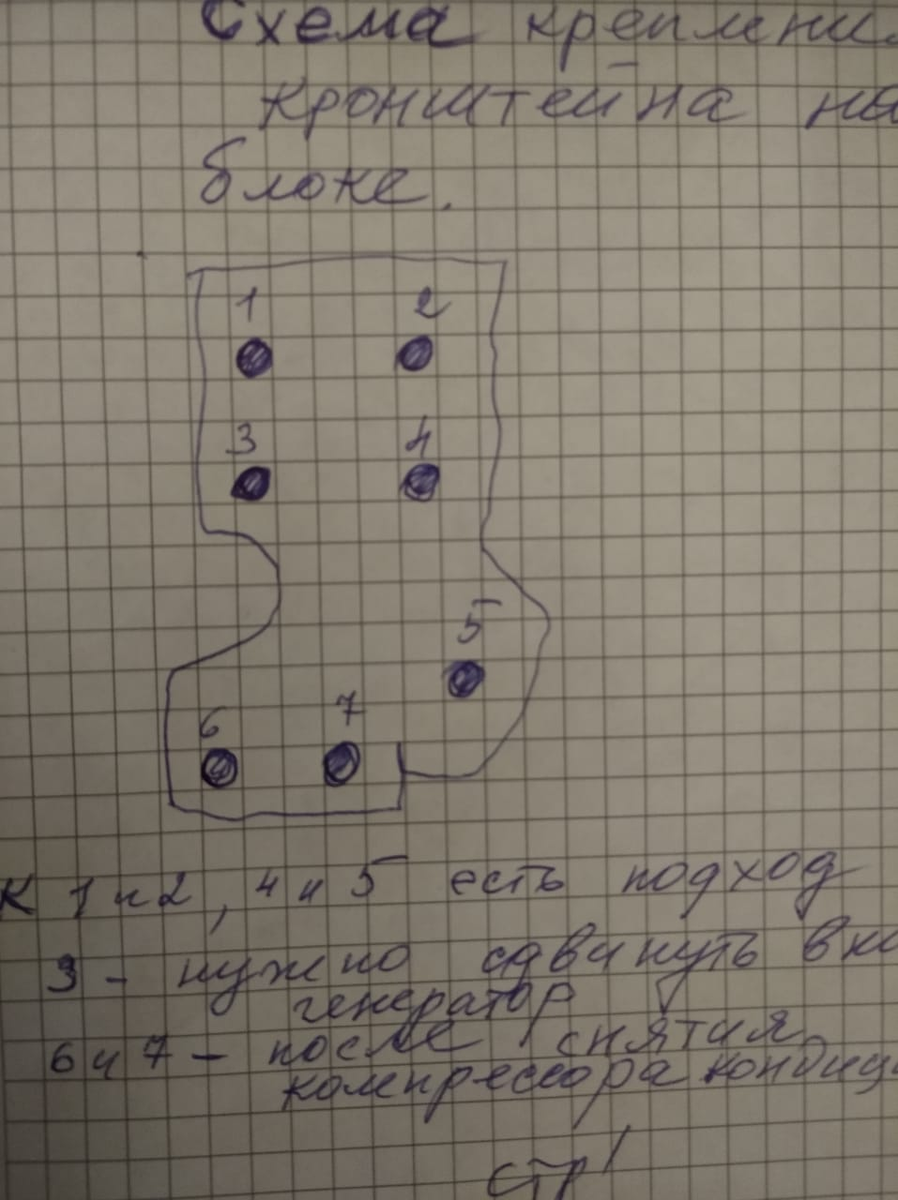 Схема креплени
кронштейна на
блоке.
1 2
3 4
5
6 7
К 1 и 2, 4 и 5 есть подход
3 - нужно сдвинуть вни
генератор
6 и 7 - после снятия
компрессора кондици
стр 1